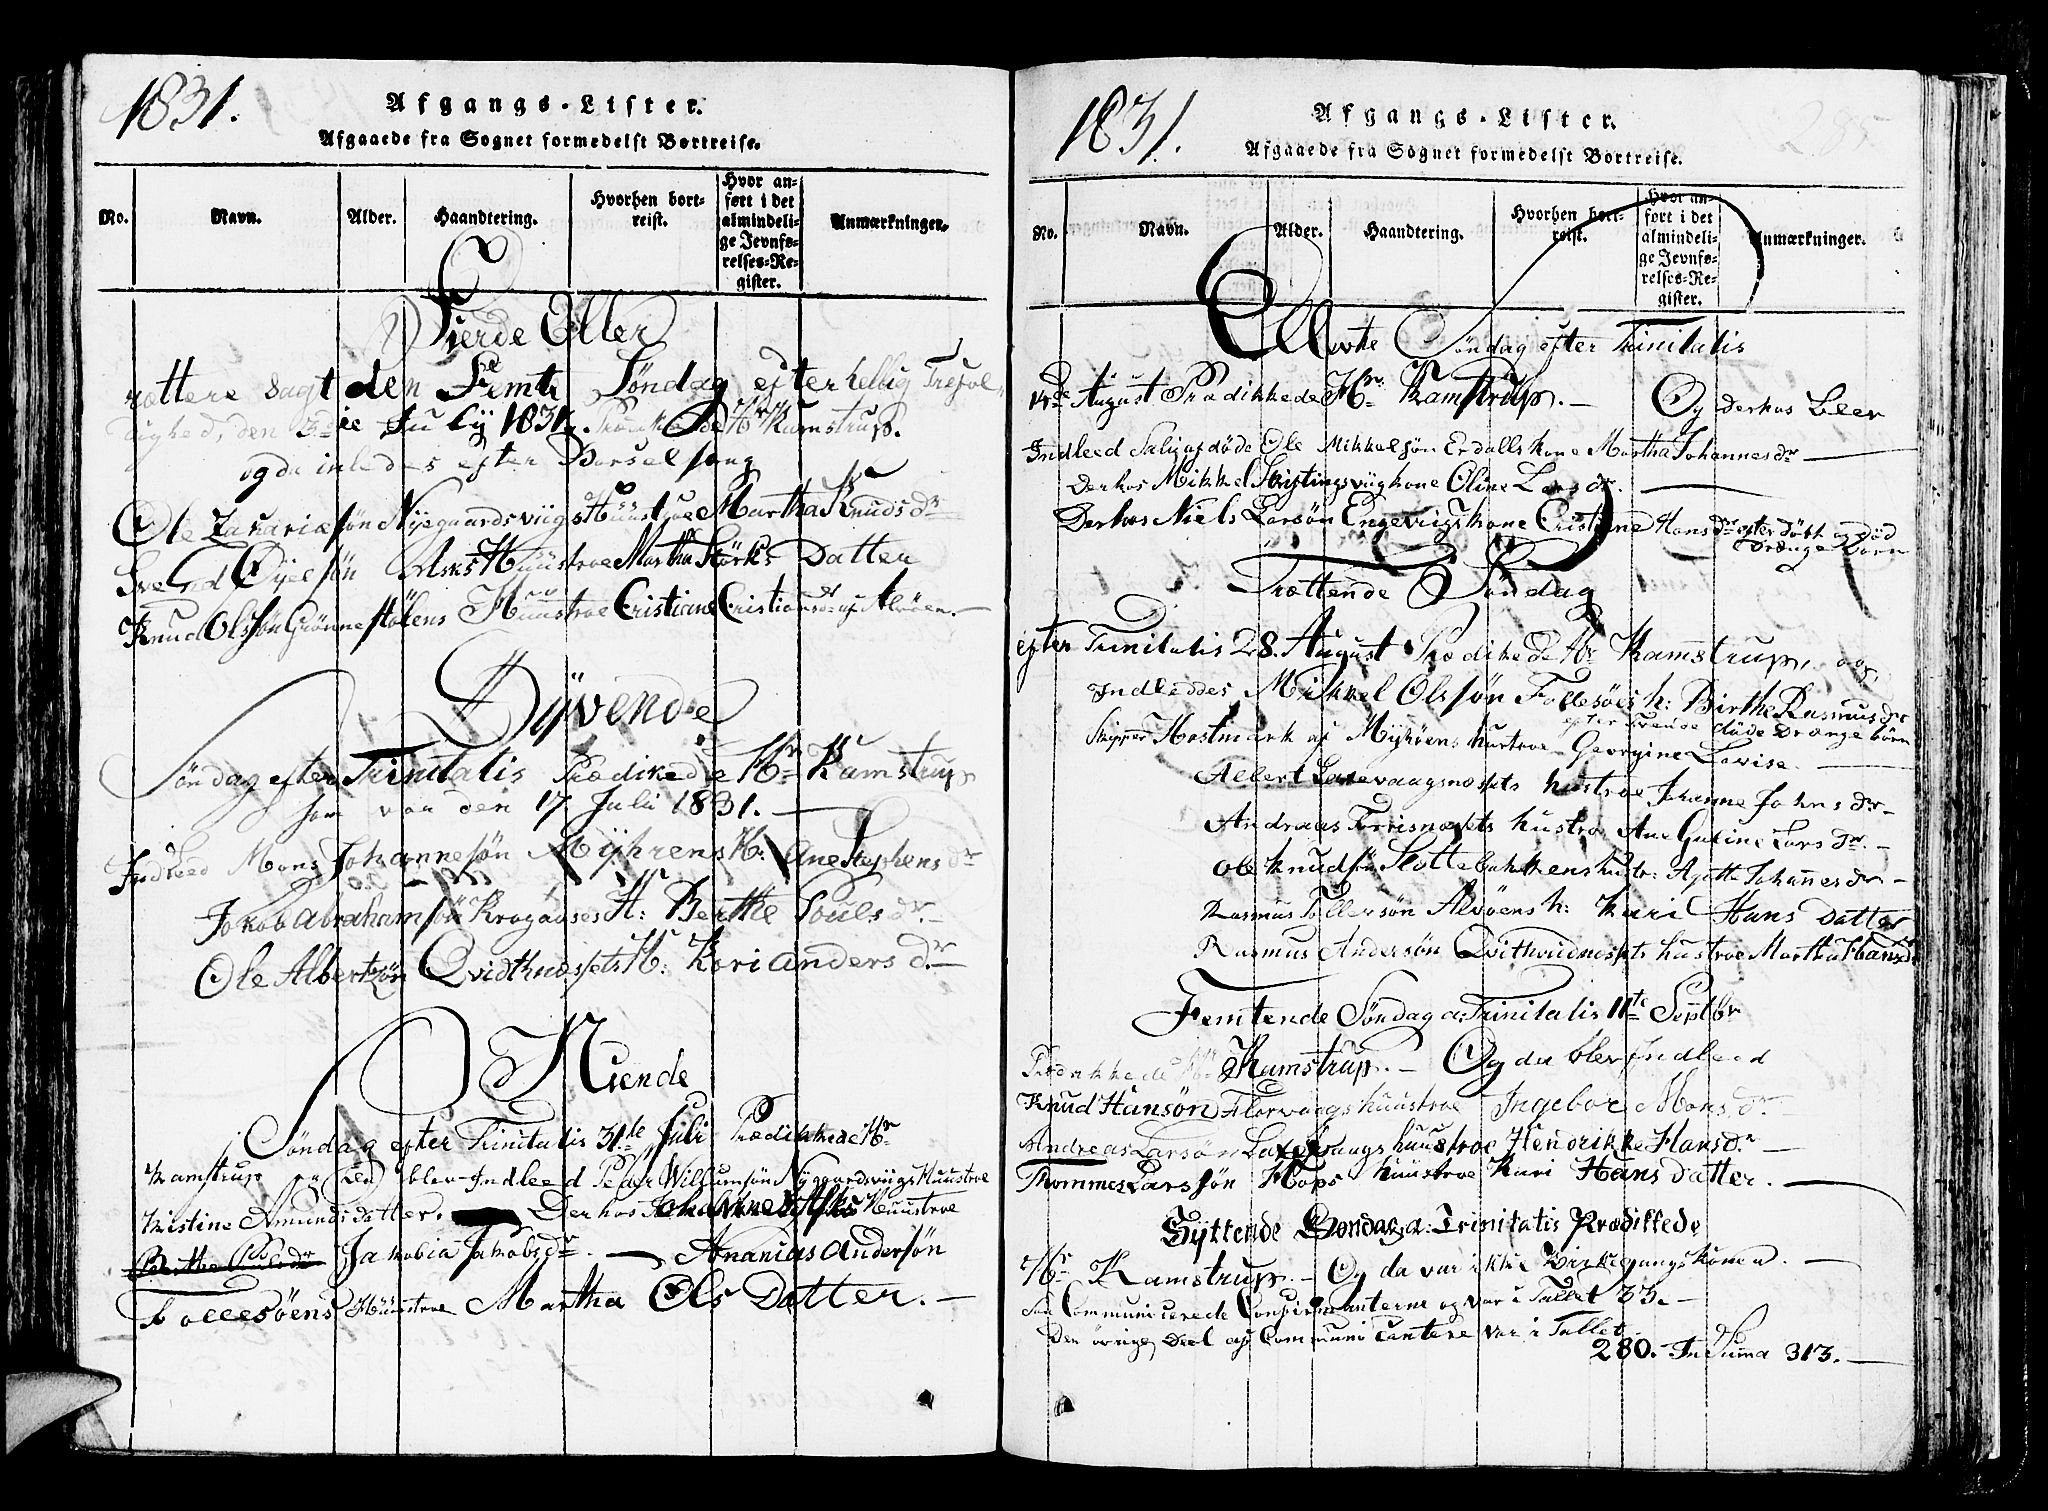 1831.
Afgangs-Lister.
Afgaaede fra Sognet formedelst Bortreise.
No.
Navn.
Alder.
Haandtering.
Hvorhen bort-
reist.
Hvor an-
ført i det
almindeli-
ge Jevnfø-
relses-Re-
gister.
Anmærkninger.
Fierde Eller
rettere sagt den Femte Søndag efter hellig Trefol-
dighed, den 3die July 1831. Prædikede Hr Kamstrup.
og da inledes efter Barselsang
Ole Zakariæsøn Nygaardsviigs Huustroe Martha Knudsdr
Svend Øyelsøn Asks Huustroe Martha Størks Datter
Knud Olssøn Grønnestølens Huustroe Cristiane Cristiansdr af Alvøen.
Syvende
Søndag efter Trinitatis Prædikede Hr Kamstrup
som var den 17 Juli 1831.
Indleed Mons Johannesøn Myhrens H: Ane Stephensdr
Jakob Abrahamsøn Kragaases H: Berthe Poulsdr.
Ole Albertzøn Qvidthudsets H: Kari Andersdr.
Niende
Søndag efter Trinitatis 31te Juli Prædikkede Hr
Kamstrup blev Indleed Peder Willumsøn Nygaardsviigs Huustroe
Kristine Amundsdatter. Derhos Asks Huustroe
Berthe Poulsdr Jakobia Jakobsdr. Ananias Andersøn
Follesøens Huustroe Martha Ols Datter.
1831.
Afgangs-Lister.
Afgaaede fra Sognet formedelst Bortreise.
No.
Navn.
Alder.
Haandtering.
Hvorhen bort-
reist.
Hvor an-
ført i det
almindeli-
ge Jevnfø-
relses-Re-
gister.
Anmærkninger.
Ellevte Søndag efter Trinitatis
14de August Prædikkede Hr Kamstrup. Og derhos Blev
Indleed Salig afdøde Ole Mikkelsøn Erdalls kone Martha Johannesdr
Derhos Mikkel Skistingsviig kone Oline Larsdr.
Derhos Niels Larsøn Engeviigs kone Cristine Hansdr efter døbt og død
Drænge Barn
Trættende Søndag
efter Trinitatis 28. August Prædikede Hr Kamstrup, og
Indleddes Mikkel Olssøn Follesøes h: Birthe Rasmusdr
efter Tvende døde Drænge børn
Skipper Hostmark af Myhrens hustroe Georgine Lovise.
Albert Laxevaagsnesets hustroe Johanne Johnsdr
Andreas Torrisnæsets hustro Ane Gurine Larsdr.
Ole Knudsøn Slottebakkens hustr: Agette Johannesdr
Rasmus Tollersøn Alvøens h: Kari Hans Datter
Rasmus Andersøn Qvithudnesets hustroe Martha Hansdr
Femtende Søndag a: Trinitatis 11te Septbr
Prædikkede Hr Kamstrup. Og da blev Indleed
Knud Hansøn Florvaags huustroe Ingebor Monsdr
Andreas Larsøn Laxevaags huustroe Hendrikke Hansdr
Thommes Larssøn Hops huustroe Kari Hans datter.
Syttende Søndag a: Trinitatis Prædikkede
Hr Kamstrup. Og da var ikke Kirkegangskoner.
Communicerede Confirmanterne og var i Tallet 33.
Den øvrige Deel af Communicantere var i Tallet
280. In Summa 313.